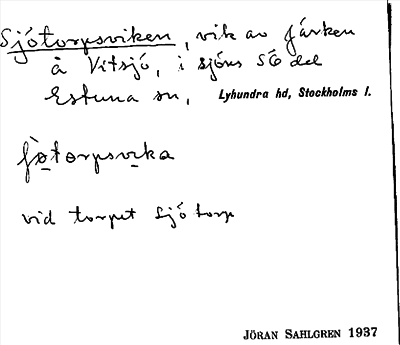 Sjötorpsviken, vik av Järken
å Vitsjö, i sjöns SÖ del
Estuna sn, Lyhundra hd, Stockholms l.
fø̀torpsvika
vid torpet Sjötorp
JÖRAN SAHLGREN 1937